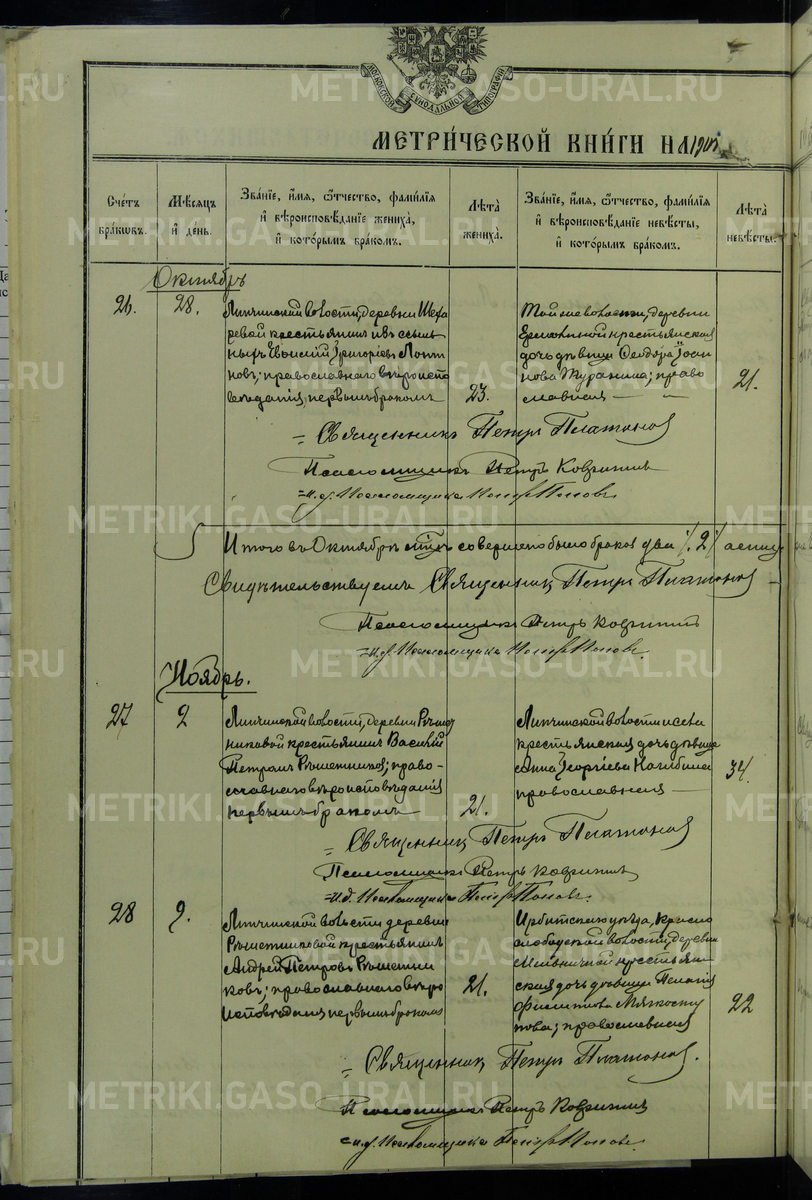 МОСКОВСКОЙ СѴНОДАЛЬНОЙ ТИПОГРАФІИ
МЕТРИ́ЧЕСКОЙ КНИ́ГИ НА 1901
Сче́тъ бра́кωвъ.
Мѣ́сяцъ и де́нь.
Зва́нїе, и́мя, ѿтчество, фами́лїя
и вѣроисповѣ́данїе жениха̀,
и кото́рымъ бра́комъ.
Лѣта̀ жениха̀.
Зва́нїе, и́мя, ѿтчество, фами́лїя
и вѣроисповѣ́данїе невѣ́сты,
и кото́рымъ бра́комъ.
Лѣта̀ невѣ́сты.
Октябрь
26. 28.
Липчинской волости, деревни
ревой крестьянинъ изъ ссыль
ныхъ Григоріевъ
новъ; православнаго вѣроиспо
вѣданія, первымъ бракомъ
23.
Той же волости, деревни
крестьянская
дочь дѣвица Ѳеодора Іоан
нова; право
славная
21.
Священникъ Петръ Платоновъ
Псаломщикъ Петръ
и. д. Псаломщика Поповъ
Итого въ Октябрѣ мѣсяцѣ совершено было браковъ два /2/
Свидѣтельствуемъ Священникъ Петръ Платоновъ
Псаломщикъ Петръ
и. д. Псаломщика Поповъ
Ноябрь.
27 2
Липчинской волости, деревни Рѣшет
никовой крестьянинъ Василій
Петровъ Рѣшетниковъ; право-
славнаго вѣроисповѣданія
первымъ бракомъ
21.
Липчинской волости и села
крестьянская дочь дѣвица
Анна Георгіева Нагибина
православная
34.
Священникъ Петръ Платоновъ
Псаломщикъ Петръ
и. д. Псаломщика Поповъ
28 9.
Липчинской волости деревни
Рѣшетниковой крестьянинъ
Андрей Петровъ Рѣшетни
ковъ; православнаго вѣро
исповѣданія первымъ бракомъ
21.
Ирбитскаго уѣзда, Красно
слободской волости, деревни
Мельничной крестьян
ская дочь дѣвица Пелагія
Филиппова Мягкосту
пова; православная
22
Священникъ Петръ Платоновъ.
Псаломщикъ Петръ
и. д. Псаломщика Поповъ
METRIKI.GASO-URAL.RU